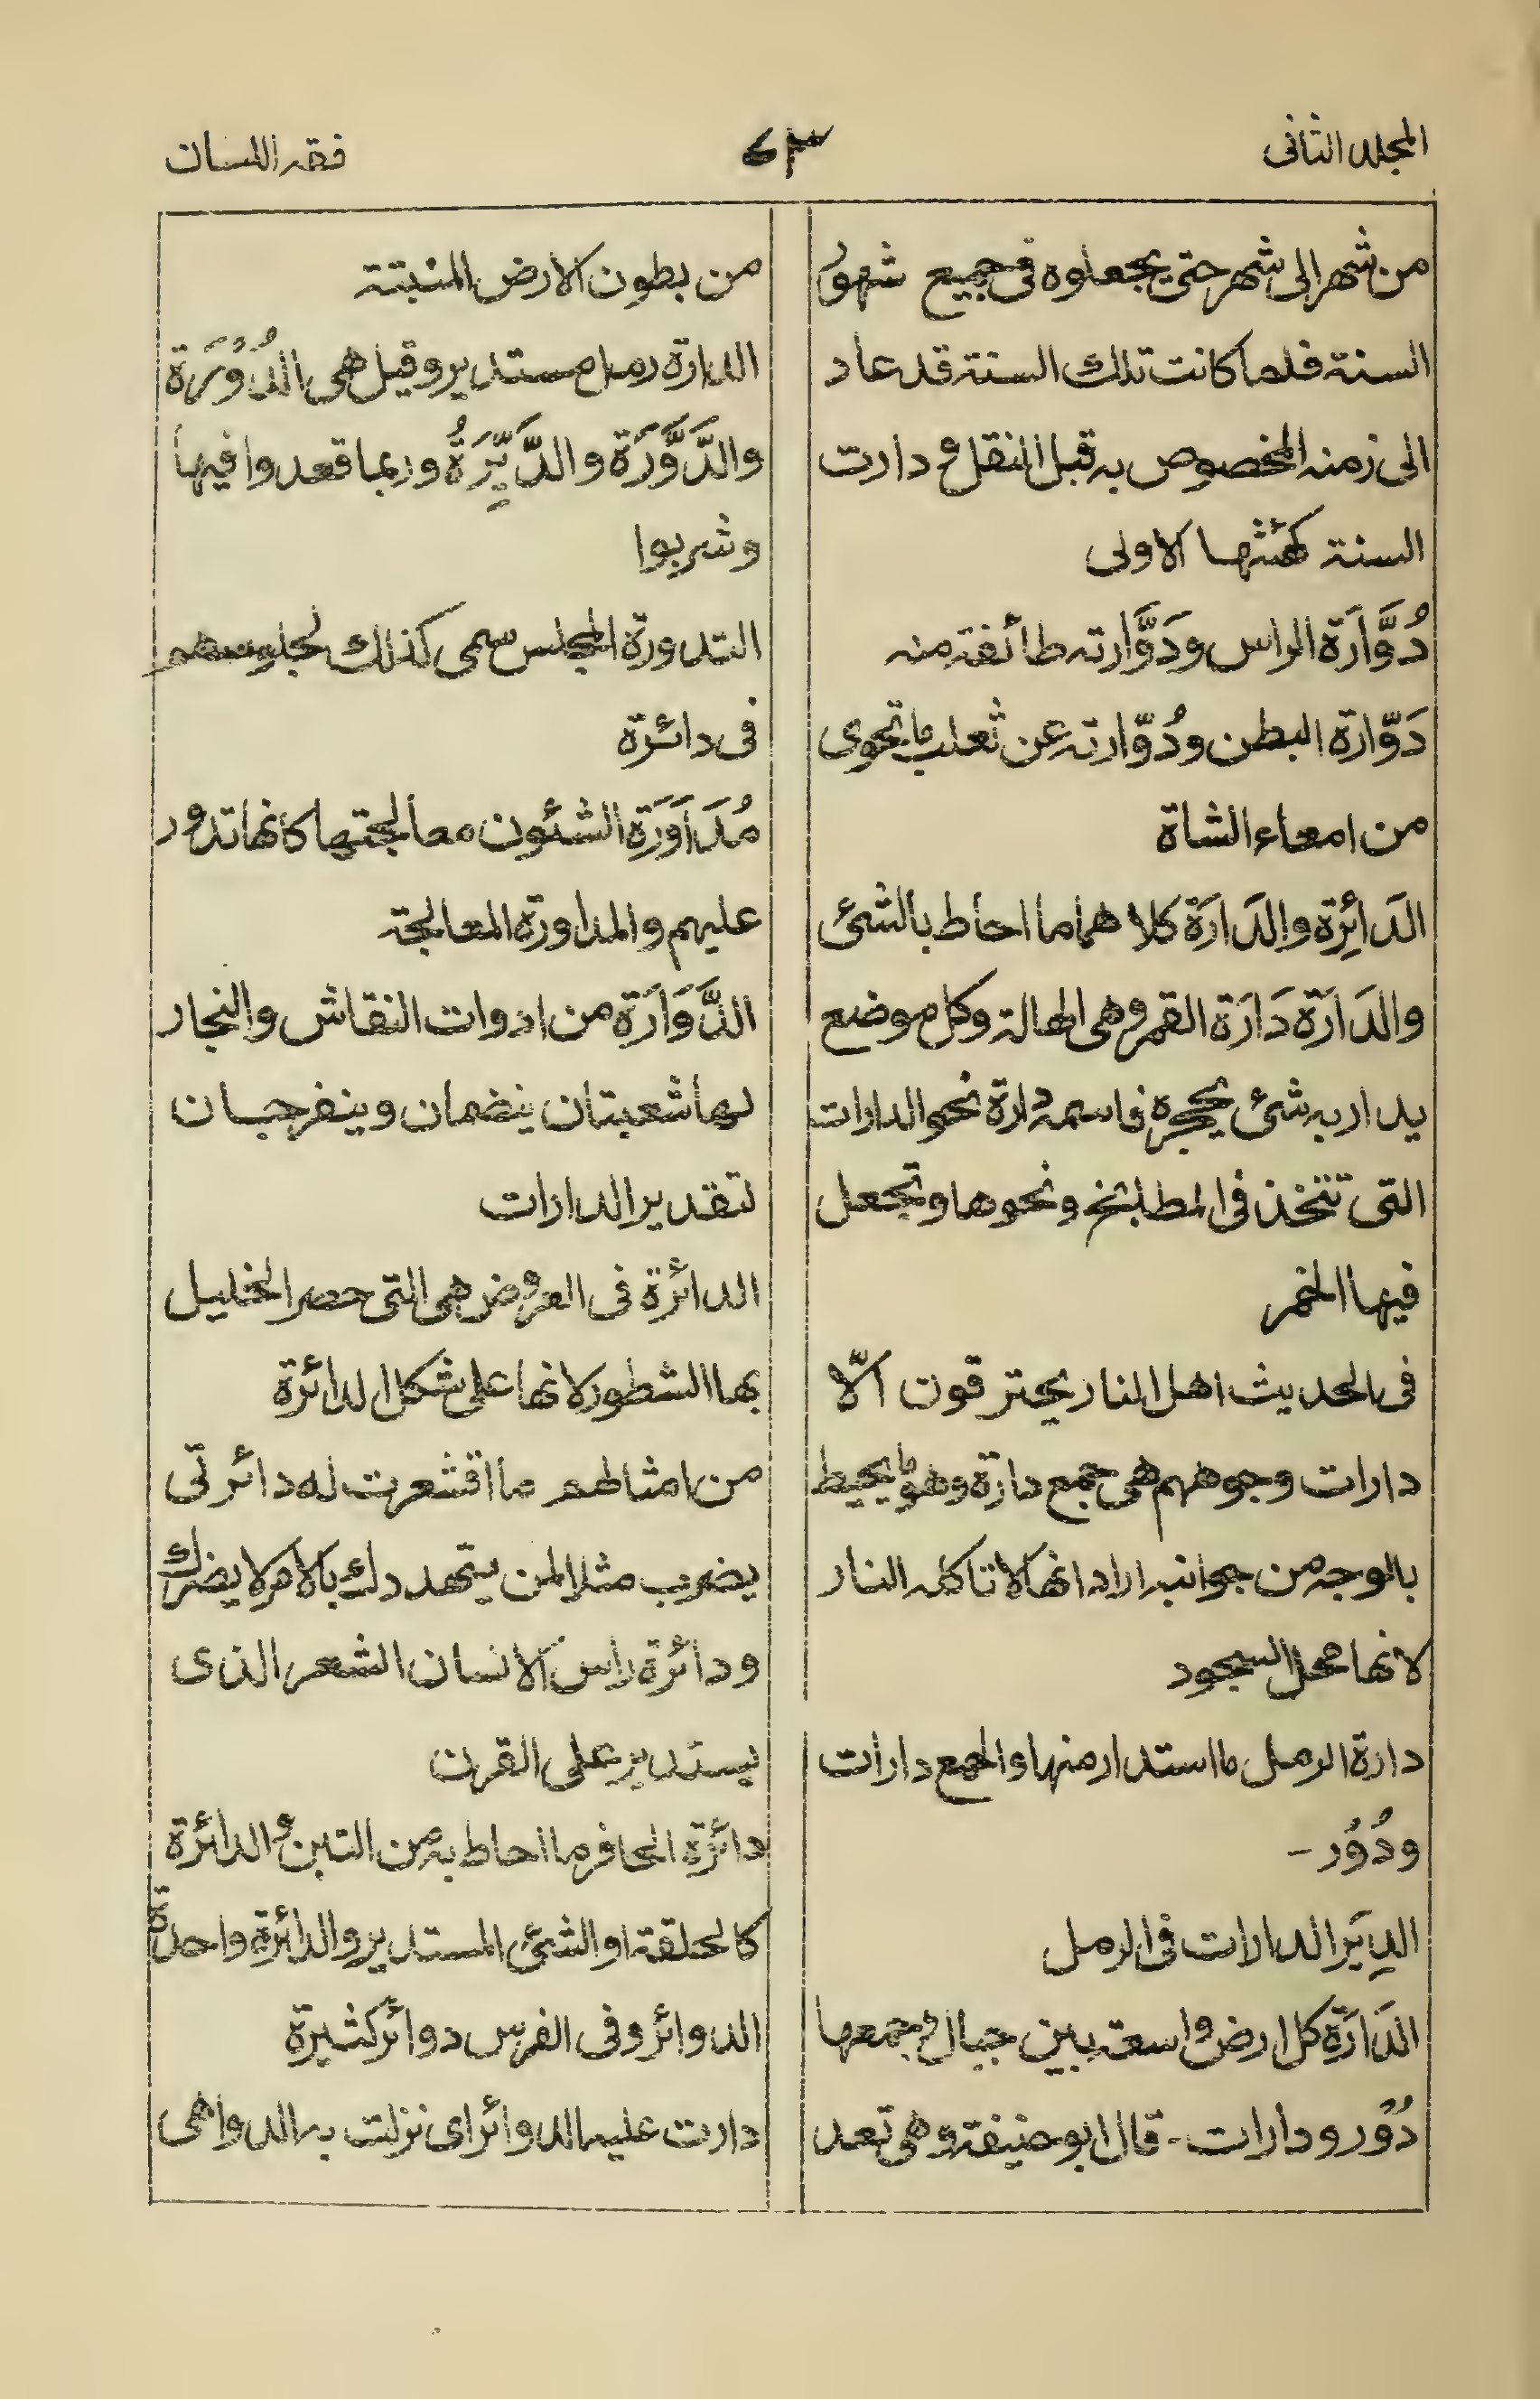 المجلد الثانى
٦٣
فقه اللسان
من شهر الى شهر حتى يجعلوه فى جميع شهور
السنة فلما كانت تلك السنة قد عاد
الى زمنه المخصوص به قبل النقل و دارت
السنة كهيئتها الاولى
دُوَّارَة الراس ودَوَّارته طائفة منه
دَوّارة البطن ودُوّارته عن ثعلب ما تحوى
من امعاء الشاة
الدَائِرة والدَارَة كلا هما ما احاط بالشئ
والدَارَة دَارَة القمر وهى الهالة وكل موضع
يدار به شئ يحجره فاسمه دارة نحو الدارات
التى تتخذ فى المطابخ ونحوها وتجعل
فيها الخمر
فى الحديث اهل النار يحترقون الّا
دارات وجوههم هى جمع دارة وهو ما يحيط
بالوجه من جوانبه اراد انها لا تاكله النار
لانها محل السجود
دارة الرمل ما استدار منها والجمع دارات
ودُوُر -
الدِيَر الدارات فى الرمل
الدَارَة كل ارض واسعة بين جبال وجمعها
دُوْر ودارات - قال ابو حنيفة وهى تعد
من بطون الارض المنبتة
الدارة رمل مستدير وقيل هى الدُوْرَة
والدَّوَّرَة والدَّيِّرَةُ وربما قعدوا فيها
وشربوا
التدورة المجلس سمى كذلك لجلوسهم
فى دائرة
مُدَاوَرَة الشئون معالجتها كانها تدور
عليهم والمداورة المعالجة
الدَّوَارَة من ادوات النقاش والنجار
لها شعبتان ينضمان وينفرجان
لتقدير الدارات
الدائرة فى العروض هى التى حصر الخليل
بها الشطور لانها على شكل الدائرة
من امثالهم ما اقشعرت له دائرتى
يضرب مثلا لمن يتهددك بالامر لا يضرك
ودائرة راس الانسان الشعر الذى
يستدير على القرن
دائرة الحافر ما احاط به من التبن والدائرة
كالحلقة او الشئ المستدير والدائرة واحدة
الدوائر وفى الفرس دوائر كثيرة
دارت عليه الدوائر اى نزلت به الدواهى